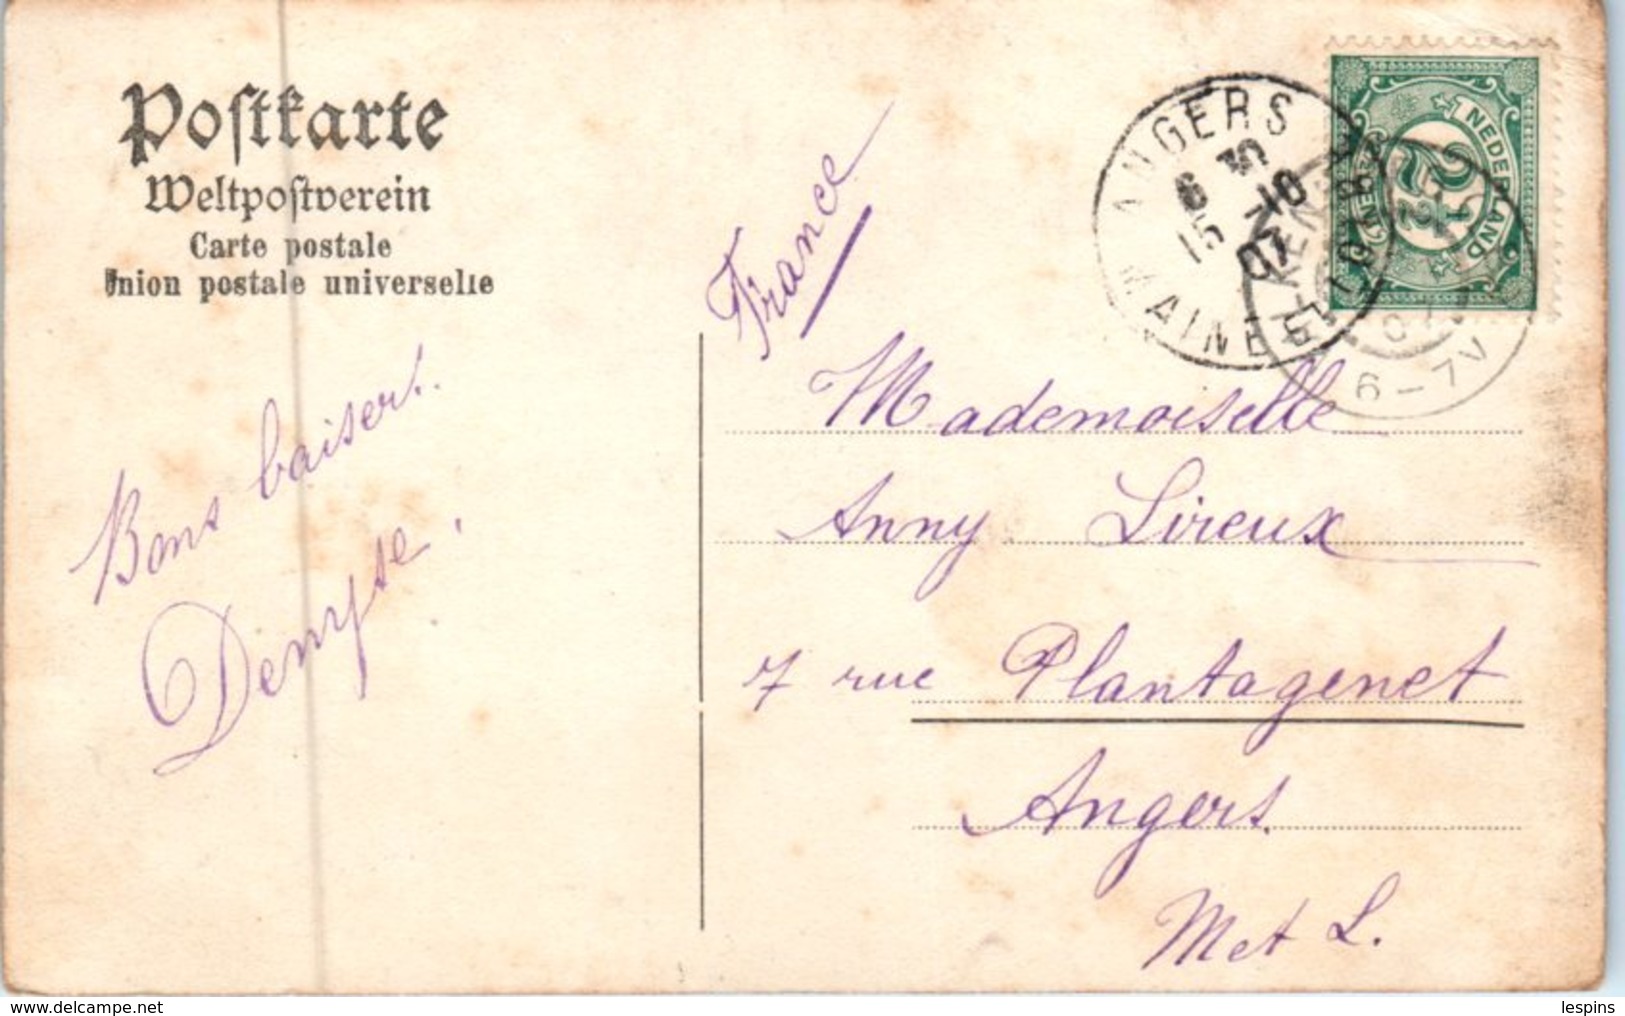 Postkarte
Weltpostverein
Carte postale
Union postale universelle
France
Bons baisers.
Denyse.
Mademoiselle
Anny Lireux
7 rue Plantagenet
Angers.
M et L.
ANGERS
MAINE
6 30
15 10
07
NEDERLAND
2½
CENT
6-7V
delcampe.net
lespins